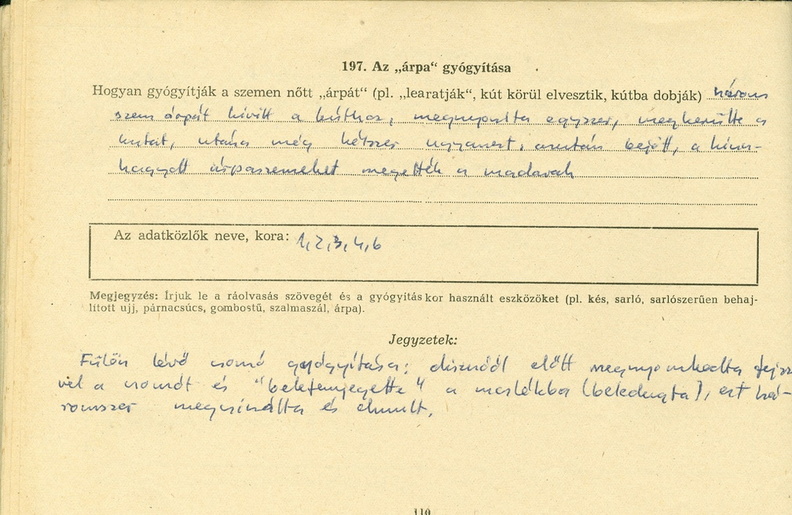 197. Az „árpa" gyógyítása
Hogyan gyógyítják a szemen nőtt „árpát" (pl. „learatják", kút körül elvesztik, kútba dobják) három
szem árpát kivitt a kúthoz, megnyomta egyszer, megkerülte a
kutat, utána még kétszer ugyanezt, azután bejött, a kinn-
hagyott árpaszemeket megették a madarak
Az adatközlők neve, kora: 1,2,3,4,6
Megjegyzés: Írjuk le a ráolvasás szövegét és a gyógyításkor használt eszközöket (pl. kés, sarló, sarlószerűen behaj-
lított ujj, párnacsúcs, gombostű, szalmaszál, árpa).
Jegyzetek:
Fülön lévő csomó gyógyítása: disznóól előtt megnyomkodta
vel a csomót és "belefenyegette" a moslékba (beledugta), ezt há-
romszor megcsinálta és elmult.
110